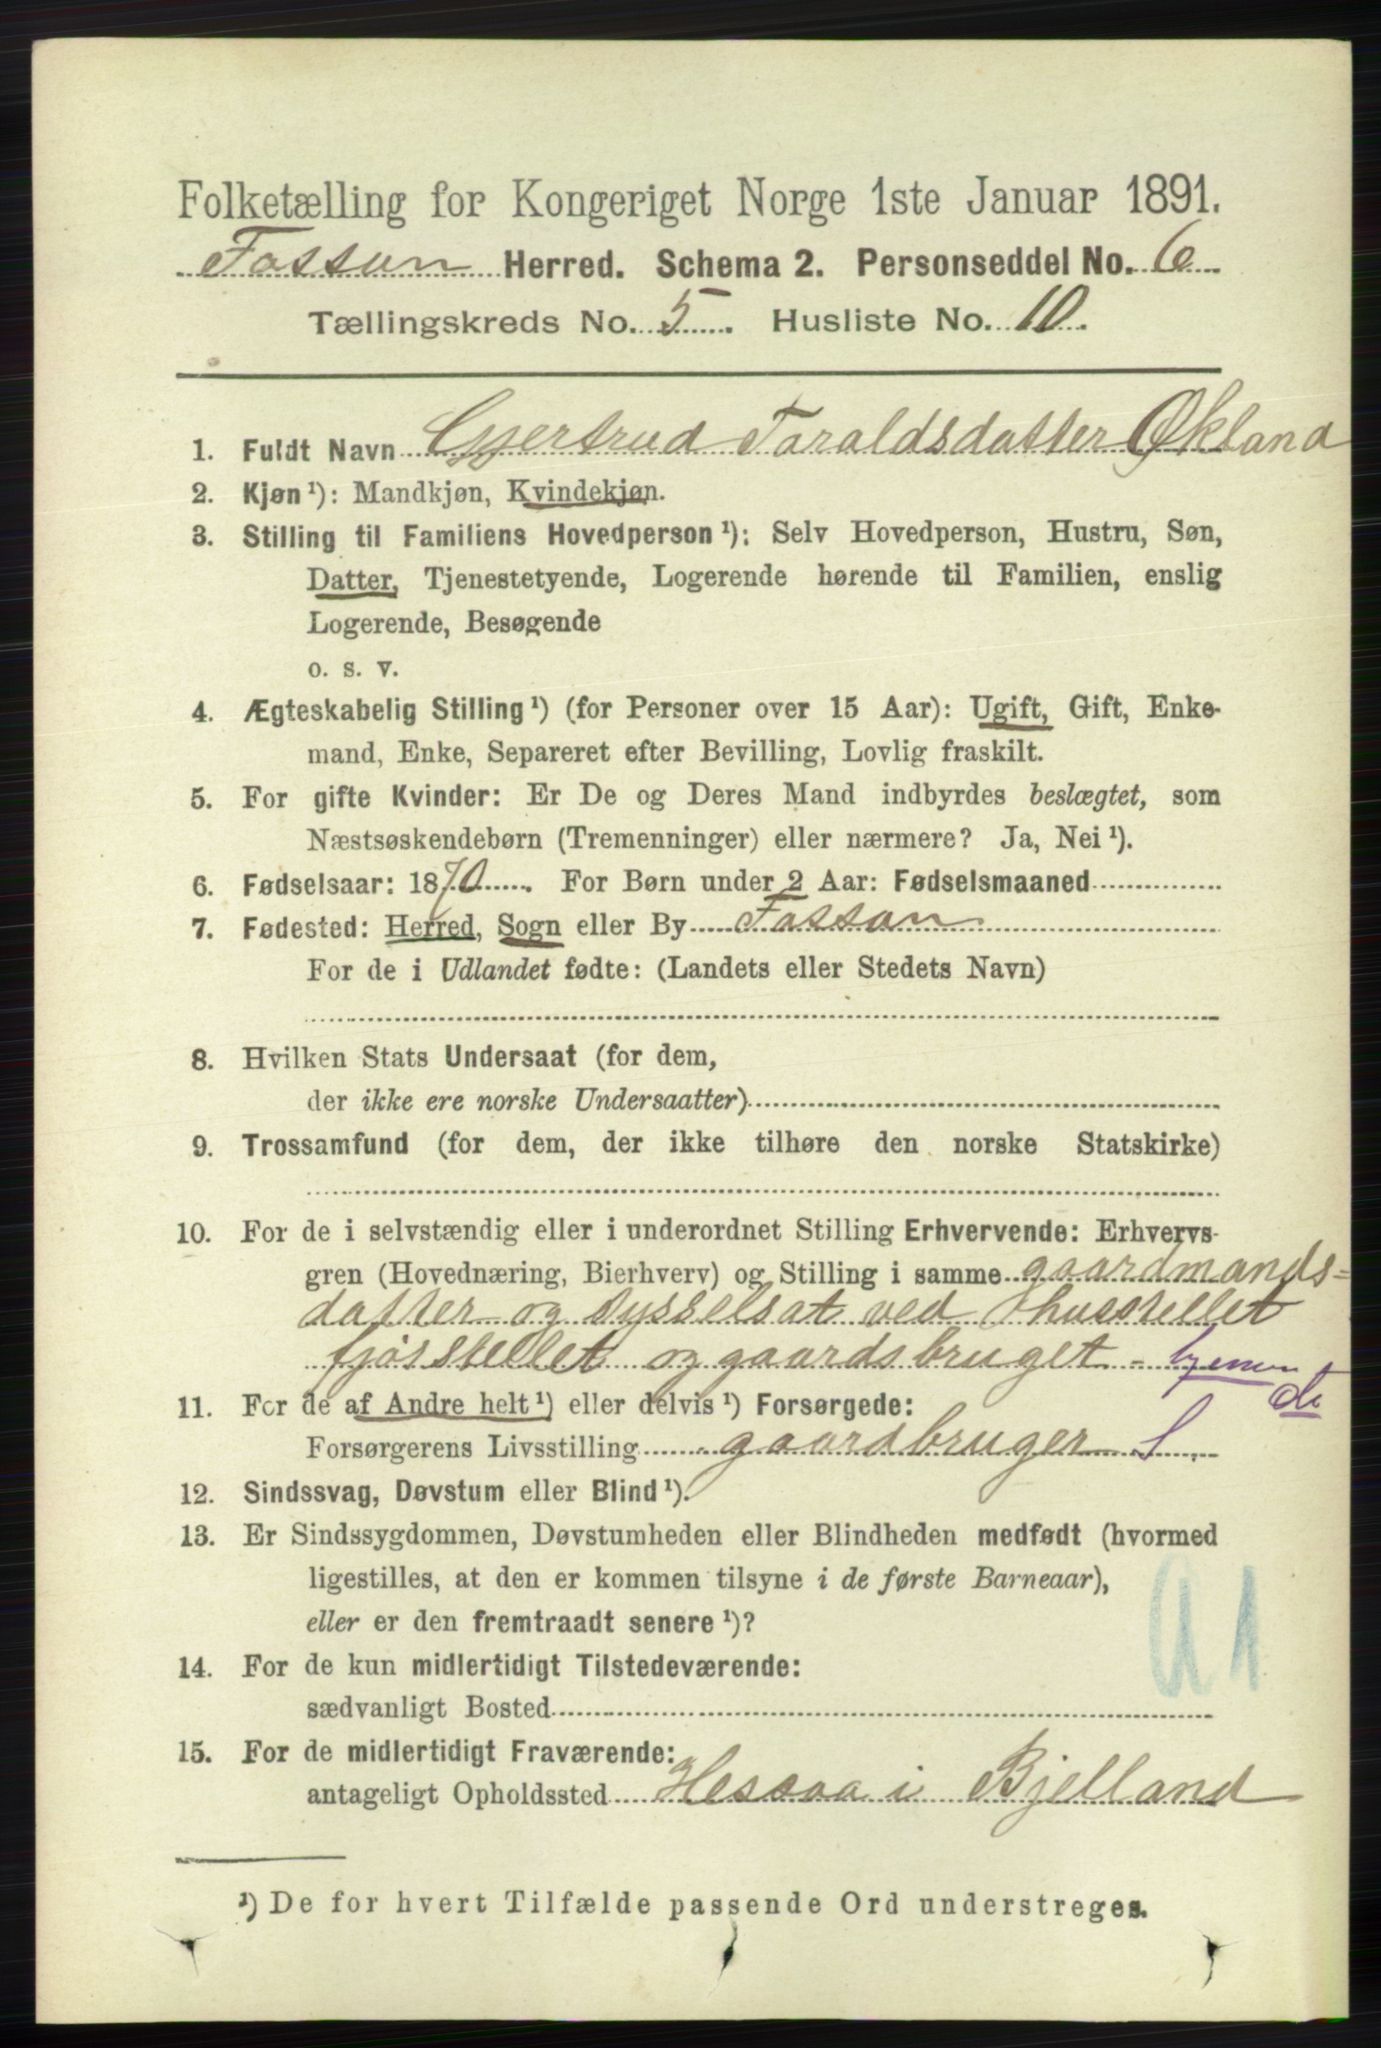 Folketælling for Kongeriget Norge 1ste Januar 1891.
Fossan Herred. Schema 2. Personseddel No. 6
Tællingskreds No. 5. Husliste No. 10.
1. Fuldt Navn Gjertrud Taraldsdatter Økland
2. Kjøn ¹): Mandkjøn, Kvindekjøn.
3. Stilling til Familiens Hovedperson ¹): Selv Hovedperson, Hustru, Søn,
Datter, Tjenestetyende, Logerende hørende til Familien, enslig
Logerende, Besøgende
o. s. v.
4. Ægteskabelig Stilling ¹) (for Personer over 15 Aar): Ugift, Gift, Enke-
mand, Enke, Separeret efter Bevilling, Lovlig fraskilt.
5. For gifte Kvinder: Er De og Deres Mand indbyrdes beslægtet, som
Næstsøskendebørn (Tremenninger) eller nærmere? Ja, Nei ¹).
6. Fødselsaar: 1870. For Børn under 2 Aar: Fødselsmaaned
7. Fødested: Herred, Sogn eller By Fossan
For de i Udlandet fødte: (Landets eller Stedets Navn)
8. Hvilken Stats Undersaat (for dem,
der ikke ere norske Undersaatter)
9. Trossamfund (for dem, der ikke tilhøre den norske Statskirke)
10. For de i selvstændig eller i underordnet Stilling Erhvervende: Erhvervs-
gren (Hovednæring, Bierhverv) og Stilling i samme gaardmands=
datter og sysselsat ved husstellet
fjøsstellet og gaardsbruget - hjemme
do
11. For de af Andre helt ¹) eller delvis ¹) Forsørgede:
Forsørgerens Livsstilling gaardbruger S
12. Sindssvag, Døvstum eller Blind ¹).
13. Er Sindssygdommen, Døvstumheden eller Blindheden medfødt (hvormed
ligestilles, at den er kommen tilsyne i de første Barneaar),
eller er den fremtraadt senere ¹)?
A1
14. For de kun midlertidigt Tilstedeværende:
sædvanligt Bosted
15. For de midlertidigt Fraværende:
antageligt Opholdssted Hesaa i Bjelland
¹) De for hvert Tilfælde passende Ord understreges.